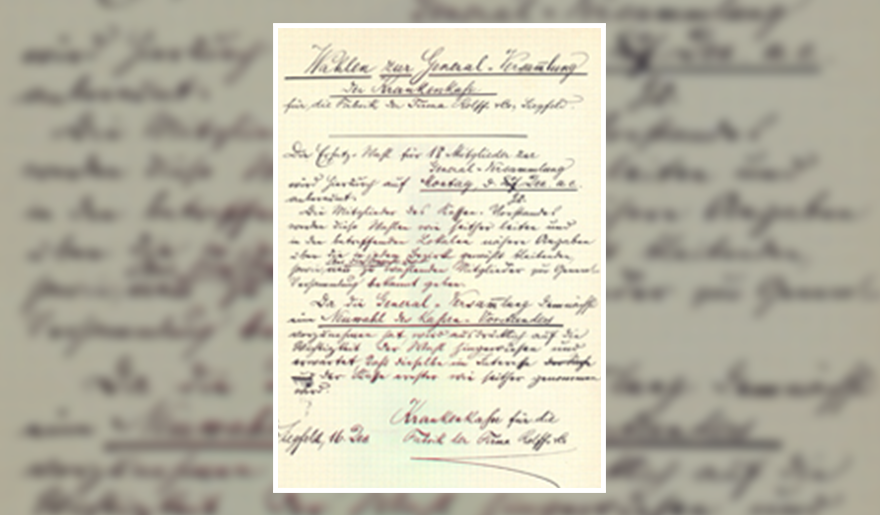 Wahlen zur General-Versam̅lung
der Krankenkasse
für die Fabrik der Firma Rolffs & Co, Siegfeld.
Die Ersatz-Wahl für 18 Mitglieder zur
General-Versammlung
wird hierdurch auf Montag, d. Dez a.c.
anberaumt.
Die Mitglieder des Kassen-Vorstandes
werden diese Wahlen wie seither leiten und
in den betreffenden Lokalen nähere Angaben
über die in jedem Bezirk gewählt bleibenden
zu wählenden Mitglieder zur General-
Versammlung bekannt geben.
Da die General-Versam̅lung demnächst
eine Neuwahl des Kassen-Vorstandes
vorzunehmen hat, wird ausdrücklich auf die
Wichtigkeit der Wahl hingewiesen und
erwartet, daß dieselbe im Interesse
der Kasse ernster wie seither genommen
wird.
Krankenkasse für die
Siegfeld, 16. Dez Fabrik der Firma Rolffs & Co